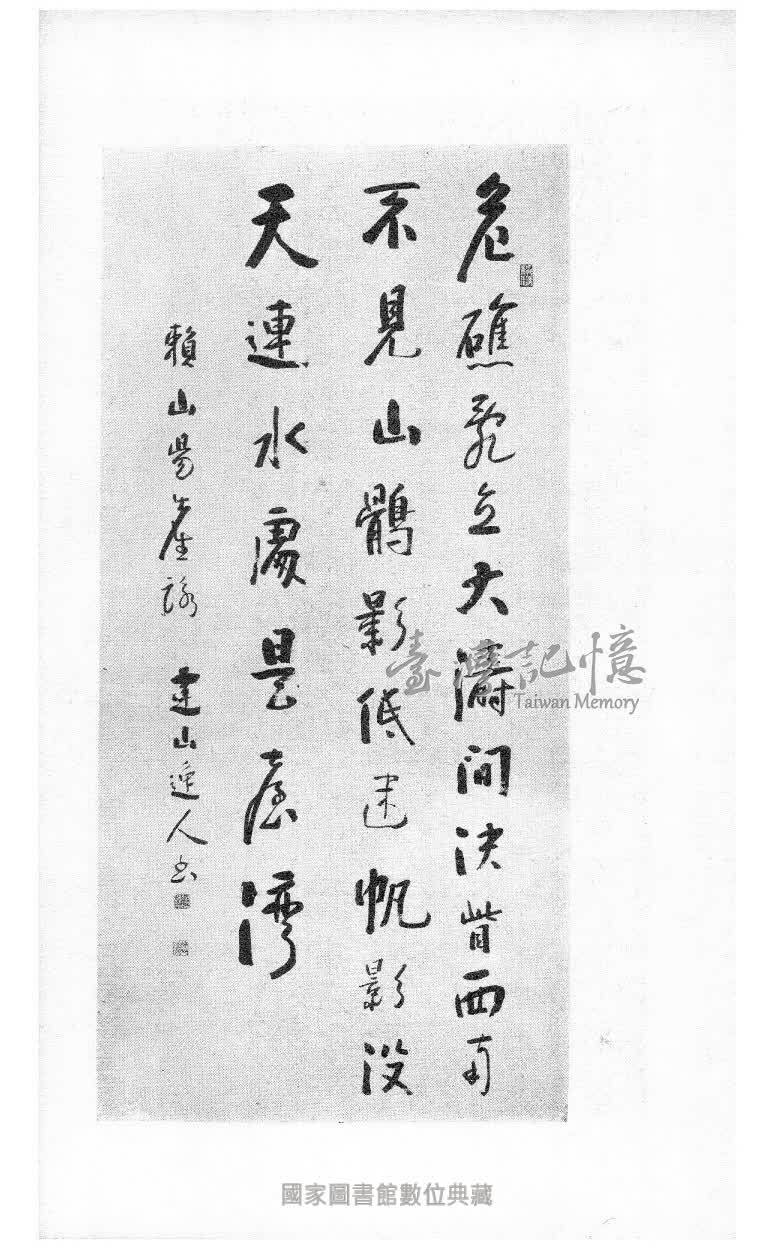 危礁亂立大濤間決眥西南
不見山鶻影低迷帆影沒
天連水處是臺湾
賴山陽 詠 山 人書
臺灣記憶
Taiwan Memory
國家圖書館數位典藏